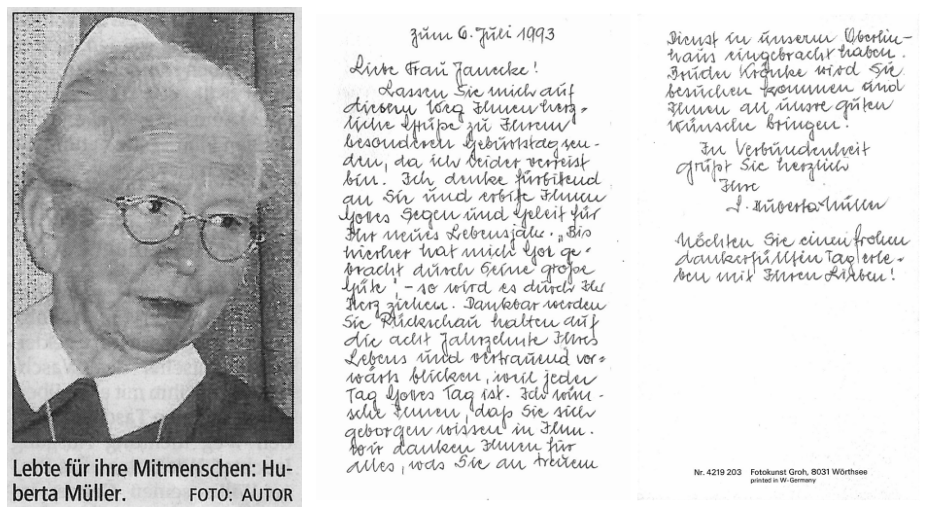 Lebte für ihre Mitmenschen: Hu-
berta Müller. FOTO: AUTOR
zum 6. Juli 1993
Liebe Frau Janecke!
Lassen Sie mich auf
diesem Weg Ihnen herz-
liche Grüße zu Ihrem
besonderen Geburtstag sen-
den, da ich leider verreist
bin. Ich denke fürbittend
an Sie und erbitte Ihnen
Gottes Segen und Geleit für
Ihr neues Lebensjahr. „Bis
hierher hat mich Gott ge-
bracht durch seine große
Güte", - so wird es durch Ihr
Herz ziehen. Dankbar werden
Sie Rückschau halten auf
die acht Jahrzehnte Ihres
Lebens und vertrauend vor-
wärts blicken, weil jeder
Tag Gottes Tag ist. Ich wün-
sche Ihnen, daß Sie sich
geborgen wissen in Ihm.
Wir danken Ihnen für
alles, was Sie an treuem
Dienst in unserm Oberlin-
haus eingebracht haben.
Bruder Kranke wird Sie
besuchen kommen und
Ihnen all unsre guten
Wünsche bringen.
In Verbundenheit
grüßt Sie herzlich
Ihre
S. Huberta Müller
Möchten Sie einen frohen
dankerfüllten Tag erle-
ben mit Ihren Lieben!
Nr. 4219 203 Fotokunst Groh, 8031 Wörthsee
printed in W-Germany